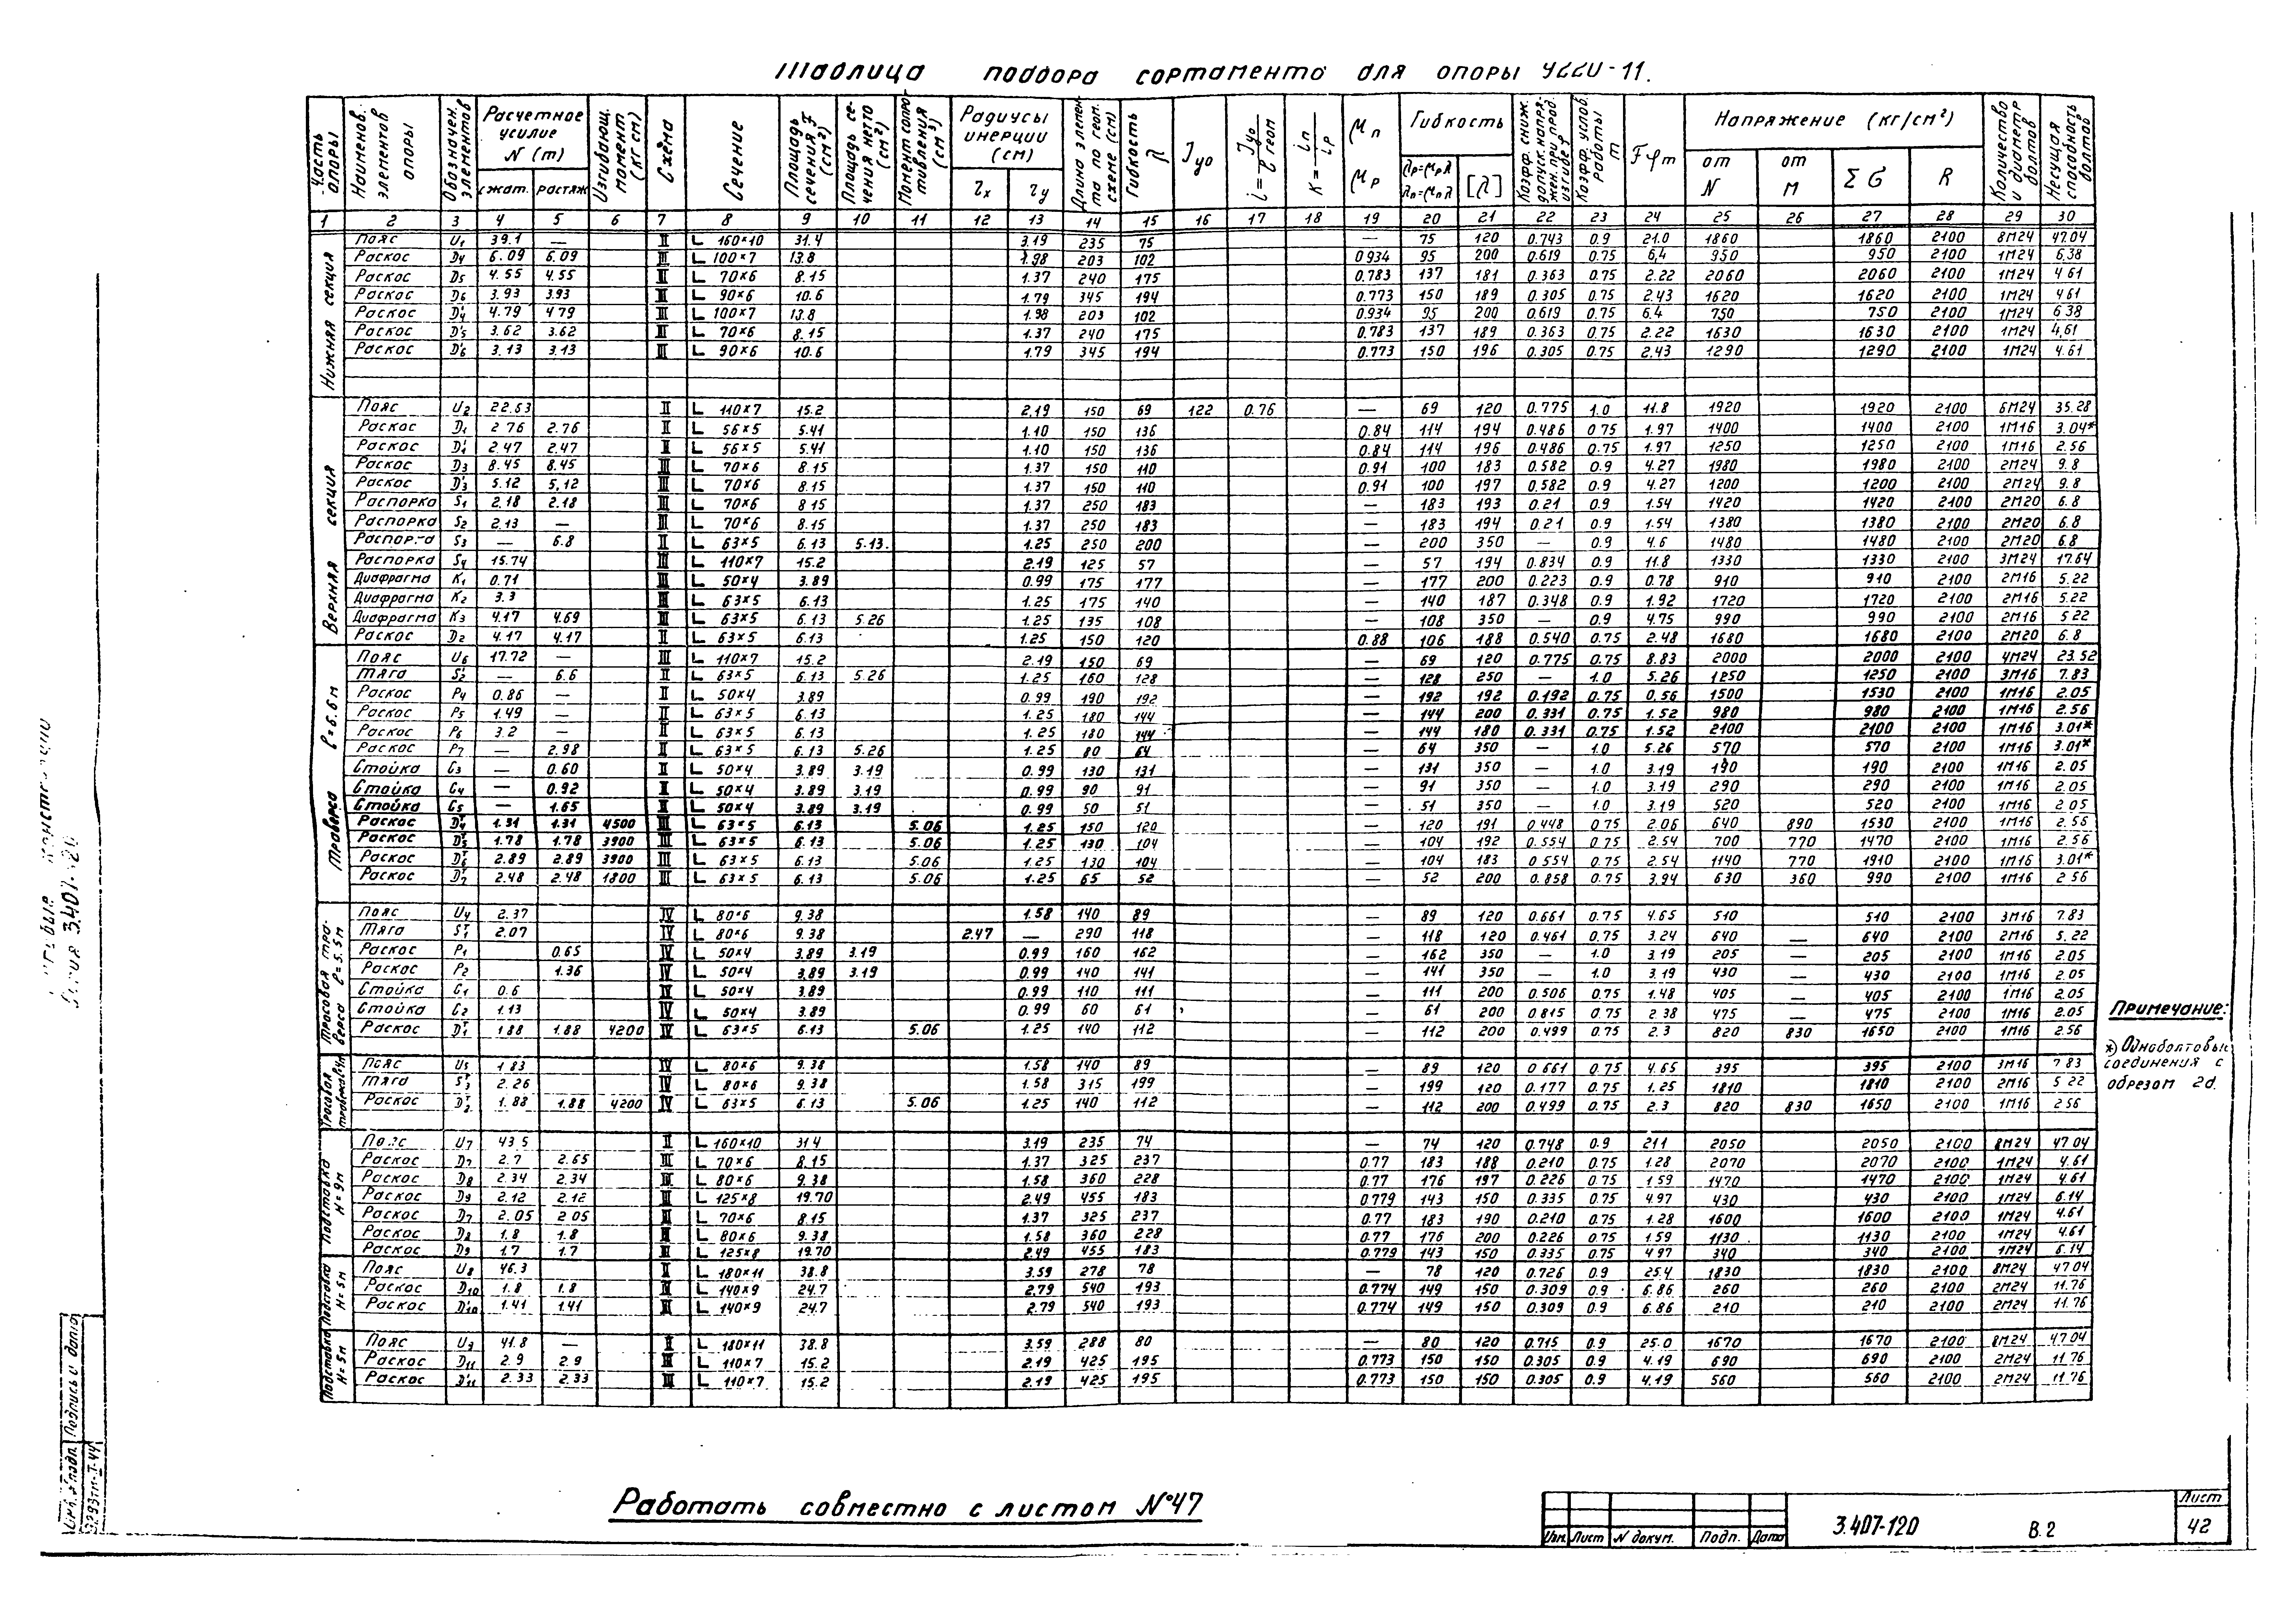 Таблица подбора сортамента для опоры У220-11.
Часть опоры | Наименов. элементов опоры | Обозначен. элементов | Расчетное усилие N (т) | Изгибающ. момент (кг см) | Схема | Сечение | Площадь сечения F (см²) | Площадь сечения нетто (см²) | Момент сопротивления (см³) | Радиусы инерции (см) | Длина элемента по геом. схеме (см) | Гибкость λ | Jуо | i = Jуо / ℓ геом | K = iп / iр | μп μр | Гибкость | Коэфф. сниж. допуск. напряжен. при прод. изгибе φ | Коэфф. услов. работы m | Fφm | Напряжение (кг/см²) | Количество и диаметр болтов | Несущая способность болтов
сжат. | растяж. | rх | rу | λр=μрλ λп=μпλ | [λ] | от N | от М | Σб | R
1 2 3 4 5 6 7 8 9 10 11 12 13 14 15 16 17 18 19 20 21 22 23 24 25 26 27 28 29 30
Нижняя секция
Пояс U1 39.1 — II L 160×10 31.4 3.19 235 75 — 75 120 0.743 0.9 21.0 1860 1860 2100 8М24 47.04
Раскос D4 6.09 6.09 III L 100×7 13.8 1.98 203 102 0.934 95 200 0.619 0.75 6,4 950 950 2100 1М24 6.38
Раскос D5 4.55 4.55 II L 70×6 8.15 1.37 240 175 0.783 137 181 0.363 0.75 2.22 2060 2060 2100 1М24 4.61
Раскос D6 3.93 3.93 III L 90×6 10.6 1.79 345 194 0.773 150 189 0.305 0.75 2.43 1620 1620 2100 1М24 4.61
Раскос D'4 4.79 4.79 III L 100×7 13.8 1.98 203 102 0.934 95 200 0.619 0.75 6.4 750 750 2100 1М24 6.38
Раскос D'5 3.62 3.62 II L 70×6 8.15 1.37 240 175 0.783 137 189 0.363 0.75 2.22 1630 1630 2100 1М24 4,61
Раскос D'6 3.13 3.13 III L 90×6 10.6 1.79 345 194 0.773 150 196 0.305 0.75 2.43 1290 1290 2100 1М24 4.61
Верхняя секция
Пояс U2 22.53 II L 110×7 15.2 2.19 150 69 122 0.76 — 69 120 0.775 1.0 11.8 1920 1920 2100 6М24 35.28
Раскос D1 2.76 2.76 II L 56×5 5.41 1.10 150 136 0.84 114 194 0.486 0.75 1.97 1400 1400 2100 1М16 3.04*
Раскос D'1 2.47 2.47 II L 56×5 5.41 1.10 150 136 0.84 114 196 0.486 0.75 1.97 1250 1250 2100 1М16 2.56
Раскос D3 8.45 8.45 III L 70×6 8.15 1.37 150 110 0.91 100 183 0.582 0.9 4.27 1980 1980 2100 2М24 9.8
Раскос D'3 5.12 5,12 III L 70×6 8.15 1.37 150 110 0.91 100 197 0.582 0.9 4.27 1200 1200 2100 2М24 9.8
Распорка S1 2.18 2.18 III L 70×6 8.15 1.37 250 183 — 183 193 0.21 0.9 1.54 1420 1420 2100 2М20 6.8
Распорка S2 2.13 — III L 70×6 8.15 1.37 250 183 — 183 194 0.21 0.9 1.54 1380 1380 2100 2М20 6.8
Распорка S3 — 6.8 II L 63×5 6.13 5.13. 1.25 250 200 — 200 350 — 0.9 4.6 1480 1480 2100 2М20 6.8
Распорка S4 15.74 III L 110×7 15.2 2.19 125 57 — 57 194 0.834 0.9 11.8 1330 1330 2100 3М24 17.64
Диафрагма K1 0.71 III L 50×4 3.89 0.99 175 177 — 177 200 0.223 0.9 0.78 910 910 2100 2М16 5.22
Диафрагма K2 3.3 III L 63×5 6.13 1.25 175 140 — 140 187 0.348 0.9 1.92 1720 1720 2100 2М16 5.22
Диафрагма K3 4.17 4.69 III L 63×5 6.13 5.26 1.25 135 108 — 108 350 — 0.9 4.75 990 990 2100 2М16 5.22
Раскос D2 4.17 4.17 II L 63×5 6.13 1.25 150 120 0.88 106 188 0.540 0.75 2.48 1680 1680 2100 2М20 6.8
Траверса ℓ=6.6м
Пояс U6 17.72 — III L 110×7 15.2 2.19 150 69 — 69 120 0.775 0.75 8.83 2000 2000 2100 4М24 23.52
Тяга S'2 — 6.6 II L 63×5 6.13 5.26 1.25 160 128 — 128 250 — 1.0 5.26 1250 1250 2100 3М16 7.83
Раскос P4 0.86 — II L 50×4 3.89 0.99 190 192 — 192 192 0.192 0.75 0.56 1500 1530 2100 1М16 2.05
Раскос P5 1.49 — II L 63×5 6.13 1.25 180 144 — 144 200 0.331 0.75 1.52 980 980 2100 1М16 2.56
Раскос P6 3.2 — II L 63×5 6.13 1.25 180 144 — 144 180 0.331 0.75 1.52 2100 2100 2100 1М16 3.01*
Раскос P7 — 2.98 II L 63×5 6.13 5.26 1.25 80 64 — 64 350 — 1.0 5.26 570 570 2100 1М16 3.01*
Стойка C3 — 0.60 II L 50×4 3.89 3.19 0.99 130 131 — 131 350 — 1.0 3.19 190 190 2100 1М16 2.05
Стойка C4 — 0.92 II L 50×4 3.89 3.19 0.99 90 91 — 91 350 — 1.0 3.19 290 290 2100 1М16 2.05
Стойка C5 — 1.65 II L 50×4 3.89 3.19 0.99 50 51 — 51 350 — 1.0 3.19 520 520 2100 1М16 2.05
Раскос Dт4 1.31 1.31 4500 III L 63×5 6.13 5.06 1.25 150 120 — 120 191 0.448 0.75 2.06 640 890 1530 2100 1М16 2.56
Раскос Dт5 1.78 1.78 3900 III L 63×5 6.13 5.06 1.25 130 104 — 104 192 0.554 0.75 2.54 700 770 1470 2100 1М16 2.56
Раскос Dт6 2.89 2.89 3900 III L 63×5 6.13 5.06 1.25 130 104 — 104 183 0.554 0.75 2.54 1140 770 1910 2100 1М16 3.01*
Раскос Dт7 2.48 2.48 1800 III L 63×5 6.13 5.06 1.25 65 52 — 52 200 0.858 0.75 3.94 630 360 990 2100 1М16 2.56
Тросовая траверса ℓ=5.5м
Пояс U4 2.37 IV L 80×6 9.38 1.58 140 89 — 89 120 0.661 0.75 4.65 510 510 2100 3М16 7.83
Тяга Sт1 2.07 IV L 80×6 9.38 2.47 — 290 118 — 118 120 0.461 0.75 3.24 640 — 640 2100 2М16 5.22
Раскос P1 0.65 IV L 50×4 3.89 3.19 0.99 160 162 — 162 350 — 1.0 3.19 205 — 205 2100 1М16 2.05
Раскос P2 1.36 IV L 50×4 3.89 3.19 0.99 140 141 — 141 350 — 1.0 3.19 430 — 430 2100 1М16 2.05
Стойка C1 0.6 IV L 50×4 3.89 0.99 110 111 — 111 200 0.506 0.75 1.48 405 — 405 2100 1М16 2.05
Стойка C2 1.13 IV L 50×4 3.89 0.99 60 61 — 61 200 0.815 0.75 2.38 475 — 475 2100 1М16 2.05
Раскос Dт1 1.88 1.88 4200 IV L 63×5 6.13 5.06 1.25 140 112 — 112 200 0.499 0.75 2.3 820 830 1650 2100 1М16 2.56
Пояс U5 1.83 IV L 80×6 9.38 1.58 140 89 — 89 120 0.661 0.75 4.65 395 395 2100 3М16 7.83
Тяга Sт3 2.26 IV L 80×6 9.38 1.58 315 199 — 199 120 0.177 0.75 1.25 1810 1810 2100 2М16 5.22
Раскос Dт2 1.88 1.88 4200 IV L 63×5 6.13 5.06 1.25 140 112 — 112 200 0.499 0.75 2.3 820 830 1650 2100 1М16 2.56
Подставка H=9м
Пояс U7 43.5 II L 160×10 31.4 3.19 235 74 — 74 120 0.748 0.9 21.1 2050 2050 2100 8М24 47.04
Раскос D7 2.7 2.65 III L 70×6 8.15 1.37 325 237 0.77 183 188 0.210 0.75 1.28 2070 2070 2100 1М24 4.61
Раскос D8 2.34 2.34 III L 80×6 9.38 1.58 360 228 0.77 176 197 0.226 0.75 1.59 1470 1470 2100 1М24 4.61
Раскос D9 2.12 2.12 III L 125×8 19.70 2.49 455 183 0.779 143 150 0.335 0.75 4.97 430 430 2100 1М24 6.14
Раскос D7 2.05 2.05 III L 70×6 8.15 1.37 325 237 0.77 183 190 0.210 0.75 1.28 1600 1600 2100 1М24 4.61
Раскос D8 1.8 1.8 III L 80×6 9.38 1.58 360 228 0.77 176 200 0.226 0.75 1.59 1130 1130 2100 1М24 4.61
Раскос D9 1.7 1.7 III L 125×8 19.70 2.49 455 183 0.779 143 150 0.335 0.75 4.97 340 340 2100 1М24 6.14
Подставка H=5м
Пояс U8 46.3 II L 180×11 38.8 3.59 278 78 — 78 120 0.726 0.9 25.4 1830 1830 2100 8М24 47.04
Раскос D10 1.8 1.8 III L 140×9 24.7 2.79 540 193 0.774 149 150 0.309 0.9 6.86 260 260 2100 2М24 11.76
Раскос D'10 1.41 1.41 III L 140×9 24.7 2.79 540 193 0.774 149 150 0.309 0.9 6.86 210 210 2100 2М24 11.76
Подставка H=5м
Пояс U9 41.8 — II L 180×11 38.8 3.59 288 80 — 80 120 0.715 0.9 25.0 1670 1670 2100 8М24 47.04
Раскос D11 2.9 2.9 III L 110×7 15.2 2.19 425 195 0.773 150 150 0.305 0.9 4.19 690 690 2100 2М24 11.76
Раскос D'11 2.33 2.33 III L 110×7 15.2 2.19 425 195 0.773 150 150 0.305 0.9 4.19 560 560 2100 2М24 11.76
Примечание:
*) Одноболтовые
соединения с
обрезом 2d.
Работать совместно с листом №47
Изм. Лист № докум. Подп. Дата
3.407-120 В.2
Лист
42
Подпись и дата